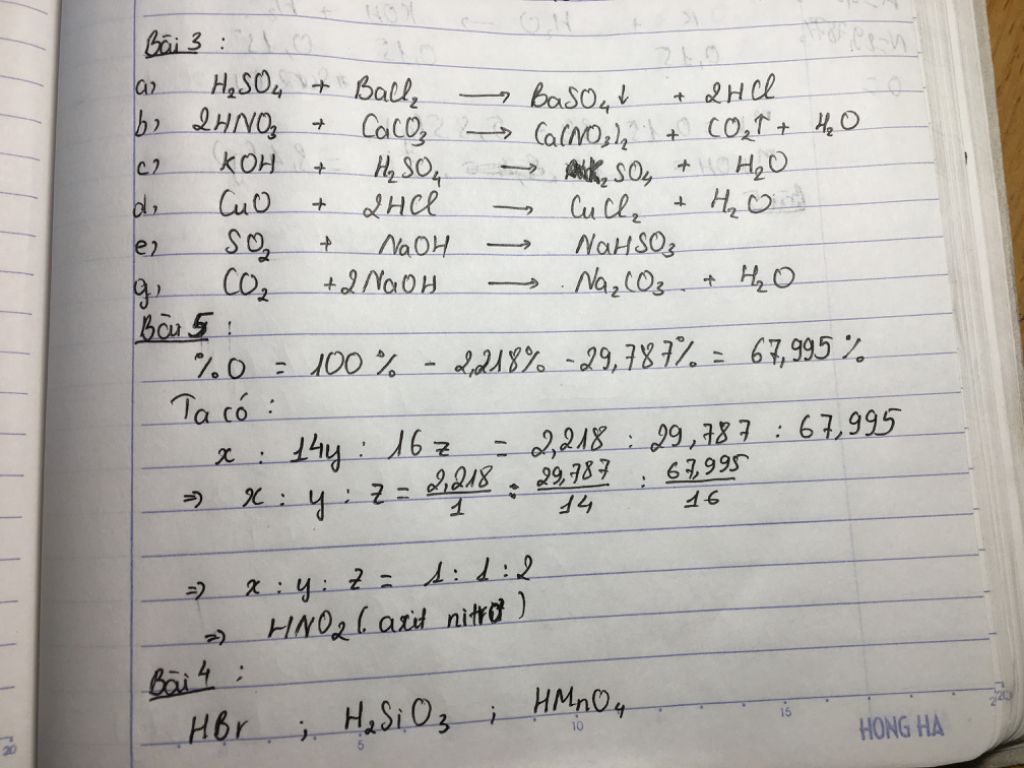 Bài 3 :
a, H₂SO₄ + BaCl₂ → BaSO₄↓ + 2HCl
b, 2HNO₃ + CaCO₃ → Ca(NO₃)₂ + CO₂↑ + H₂O
c, KOH + H₂SO₄ → K₂SO₄ + H₂O
d, CuO + 2HCl → CuCl₂ + H₂O
e, SO₂ + NaOH → NaHSO₃
g, CO₂ + 2NaOH → Na₂CO₃ + H₂O
Bài 5 :
%O = 100% - 2,218% - 29,787% = 67,995%
Ta có :
x : 14y : 16z = 2,218 : 29,787 : 67,995
⇒ x : y : z = 2,218/1 : 29,787/14 : 67,995/16
⇒ x : y : z = 1 : 1 : 2
⇒ HNO₂ (axit nitrơ)
Bài 4 :
HBr ; H₂SiO₃ ; HMnO₄
5 10 15 20
HONG HA
20